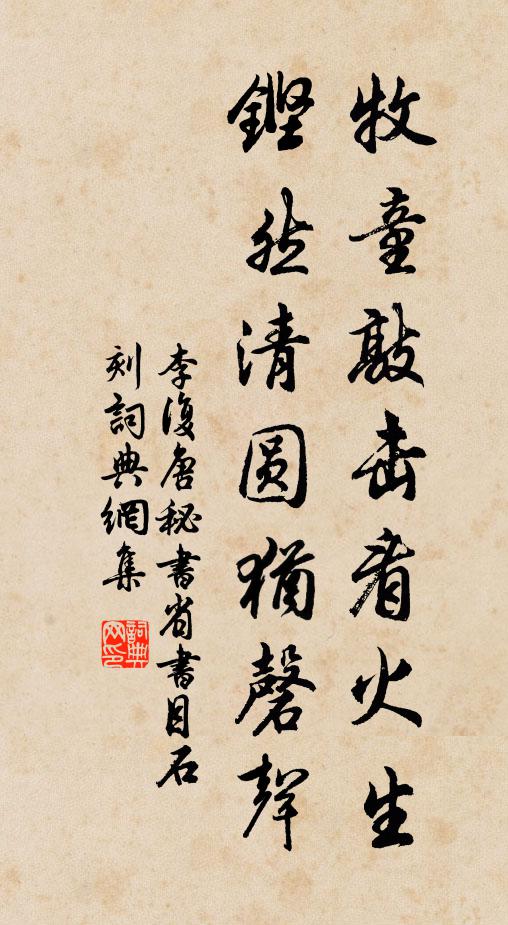 牧童敲击看火生
鏗然清圆猶磬聲
李復唐秘書省書目石
刻詞典網集
詞典
网印